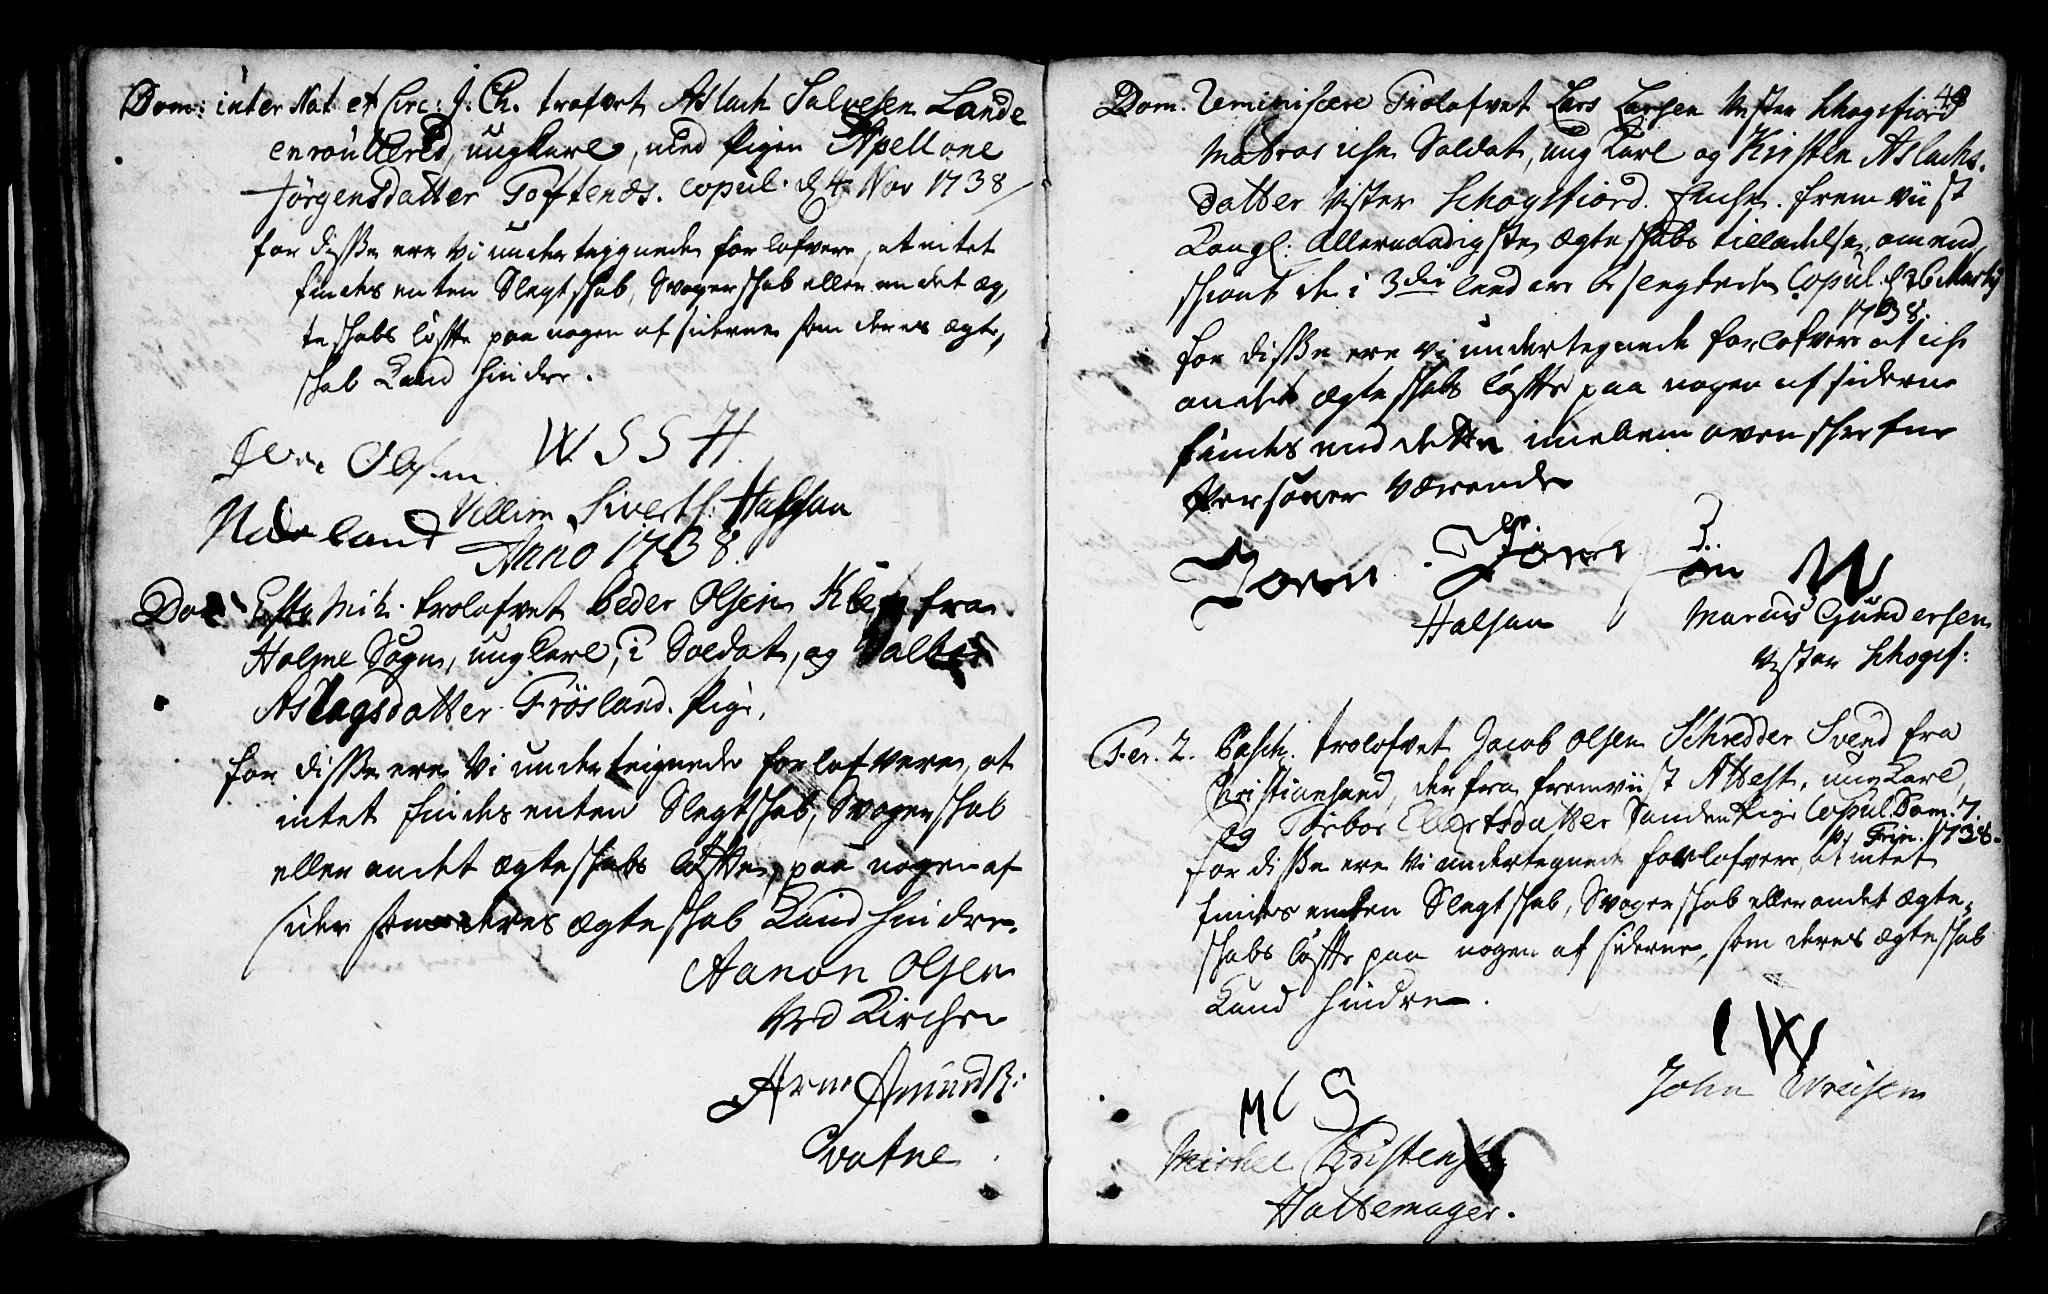 Dom: inter Nat: et Circ: J. Ch. trolofvet Aslach Salvesen Lande
enroulered, ung Karl, med Pigen Apellone
Jørgensdatter Toftenæs. copul. d 4 Nov 1738
for disse ere vi undertegnede forlofvere, at intet
findes enten Slegtskab, Svogerskab eller andet æg,
teskabs løffte paa nogen af siderne som deres ægte,
skab Kand hindre.
Olsen W S S H.
Villum Siverts: Halsaa
Anno 1738.
Dom Esto Mih. trolofvet Peder Olsen fra
Holme Sogn, ung Karl, i Soldat, og Valbor
Aslagsdatter Frøsland. Pige.
for disse ere vi underteignede forlofvere, at
intet findes enten Slegtskab, Svogerskab
eller andet ægteskabs løffte, paa nogen af
sider som deres ægteskab Kand hindre.
Aanon Olsen
ved Kirchen
Arne Amunds:
Qvatne
48
Dom. Reminiscere Trolofvet Lars Larsen Vester Schogsfiord
Matros iche Soldat, ung Karl og Kirsten Aslachs.
datter Vester Schogsfiord. Enche. fremviist
Kongl: Allernaadigste ægteskabs tilladelse, omend,
skiønt de i 3die leed ere beslegtede Copul. d 26 Martij
1738.
for disse ere vi undertegnede forlofvere at iche
andet ægteskabs løffte paa nogen af siderne
findes med dette imellem ovenskrefne
Persohner værende
Halsaa
W
Marcus Gundersen
Vester Schogsf:
Fer. 2. Pasch. trolofvet Jacob Olsen Schredder Svend fra
Christiansand, derfra fremviist Attest, ung Karl,
og Torbor Ellertsdatter Sanden Pige Copul. Dom. 7.
p: Trin. 1738.
for disse ere vi undertegnede forlofvere, at intet
findes enten Slegtskab, Svogerskab eller andet ægte,
skabs løffte paa nogen af siderne, som deres ægteskab
Kand hindre.
I W
John Wreisen
M C S
Michel Christens:
Hattemager.